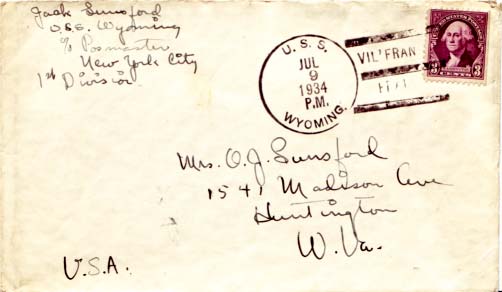 Jack Lunsford
U.S.S. Wyoming
c/o Posmaster
New York City
1st Division
U.S.S.
JUL
9
1934
P.M.
WYOMING.
VIL'FRAN
UNITED STATES POSTAGE
3 CENTS 3
Mrs. O. J. Lunsford
1541 Madison Ave
Huntington
W. Va.
U.S.A.